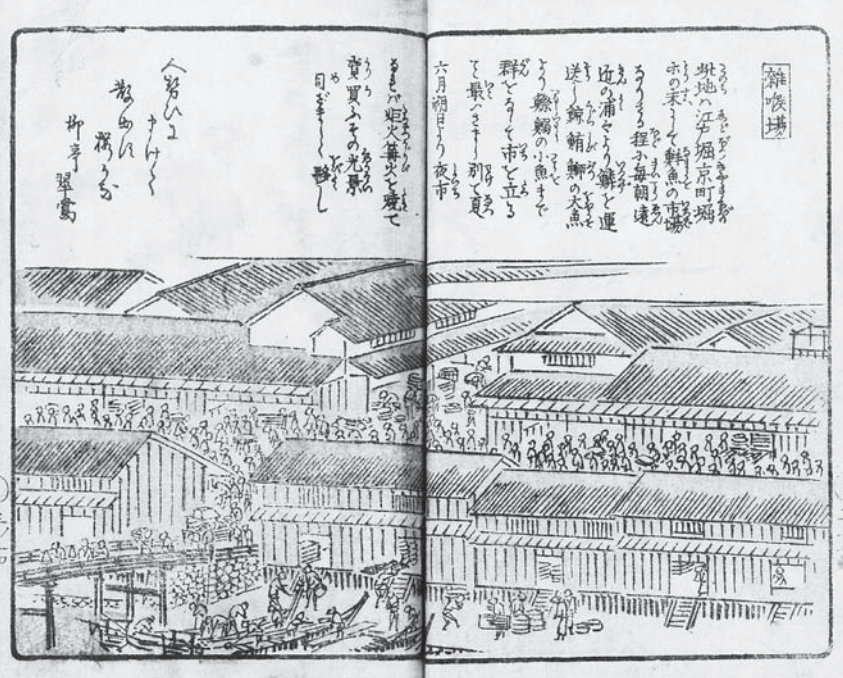 雑喉場
此地ハ江戸堀京町堀
ホの末にて鮮魚の市場
なりさる程小毎朝遠
近の浦々より鱗を運
送し鯨鮪鰤の大魚
より鰺鰯の小魚まで
群をなして市を立る
て最いさまし別て夏
六月朔日より夜市
あれバ炬火篝火を焼て
賣買ふその光景
目ざましく賑し
人勢ひに
柳亭